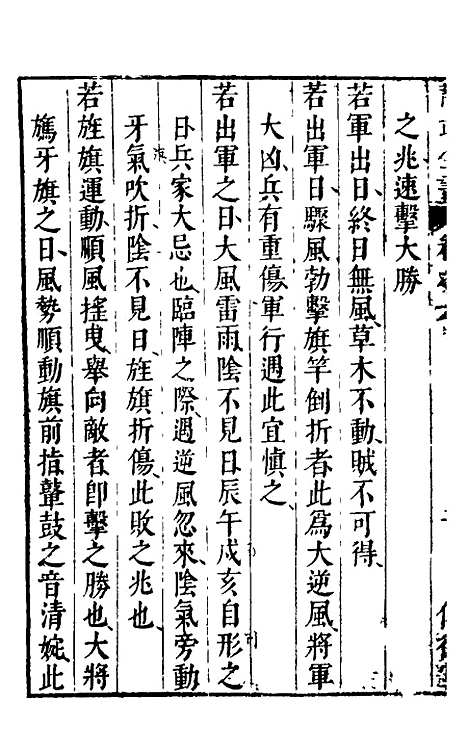 之兆速擊大勝
若軍出日終日無風草木不動賊不可得
若出軍日驟風勃擊旗竿倒折者此爲大逆風將軍
大凶兵有重傷軍行遇此宜慎之
若出軍之日大風雷雨陰不見日辰午戌亥自形之
日兵家大忌也臨陣之際遇逆風忽來陰氣旁動
牙氣吹折陰不見日旌旗折傷此敗之兆也
若旌旗運動順風搖曳舉向敵者卽擊之勝也大將
旗牙旗之日風勢順動旗前指鼙鼓之音清婉此